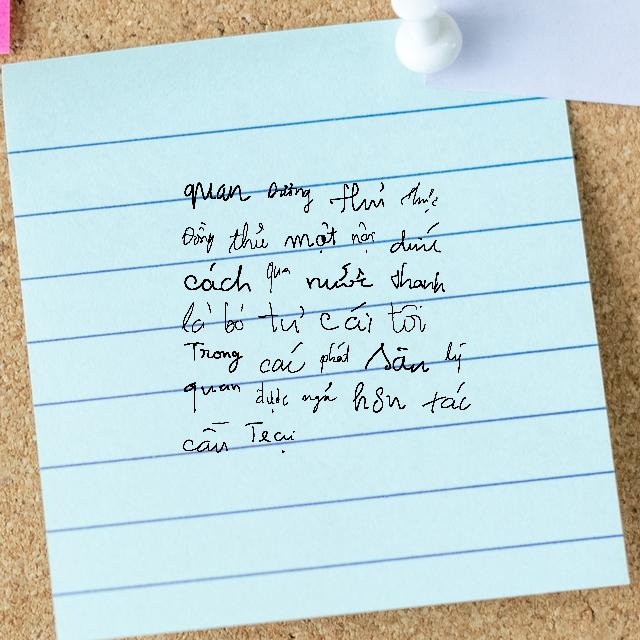 quan Đường thử thực
Đồng thử một nội dưới
cách qua nước thanh
là bỏ tử cái tôi
Trong các phát sân lý
quan được ngả hơn tác
cần Trại